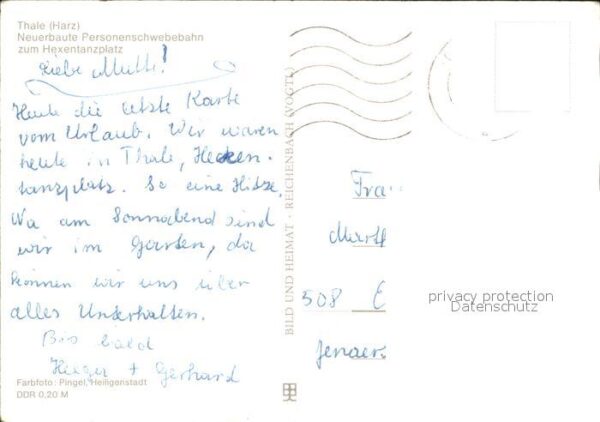 Thale (Harz)
Neuerbaute Personenschwebebahn
zum Hexentanzplatz
Liebe Mutti!
Heute die letzte Karte
vom Urlaub. Wir waren
heute in Thale, Hexen-
tanzplatz. So eine Hitze.
Na am Sonnabend sind
wir im Garten, da
können wir uns über
alles Unterhalten.
Bis bald
+ Gerhard
Farbfoto: Pingel, Heiligenstadt
DDR 0,20 M
BILD UND HEIMAT · REICHENBACH (VOGTL)
Fra
508 E
Jenaers
privacy protection
Datenschutz